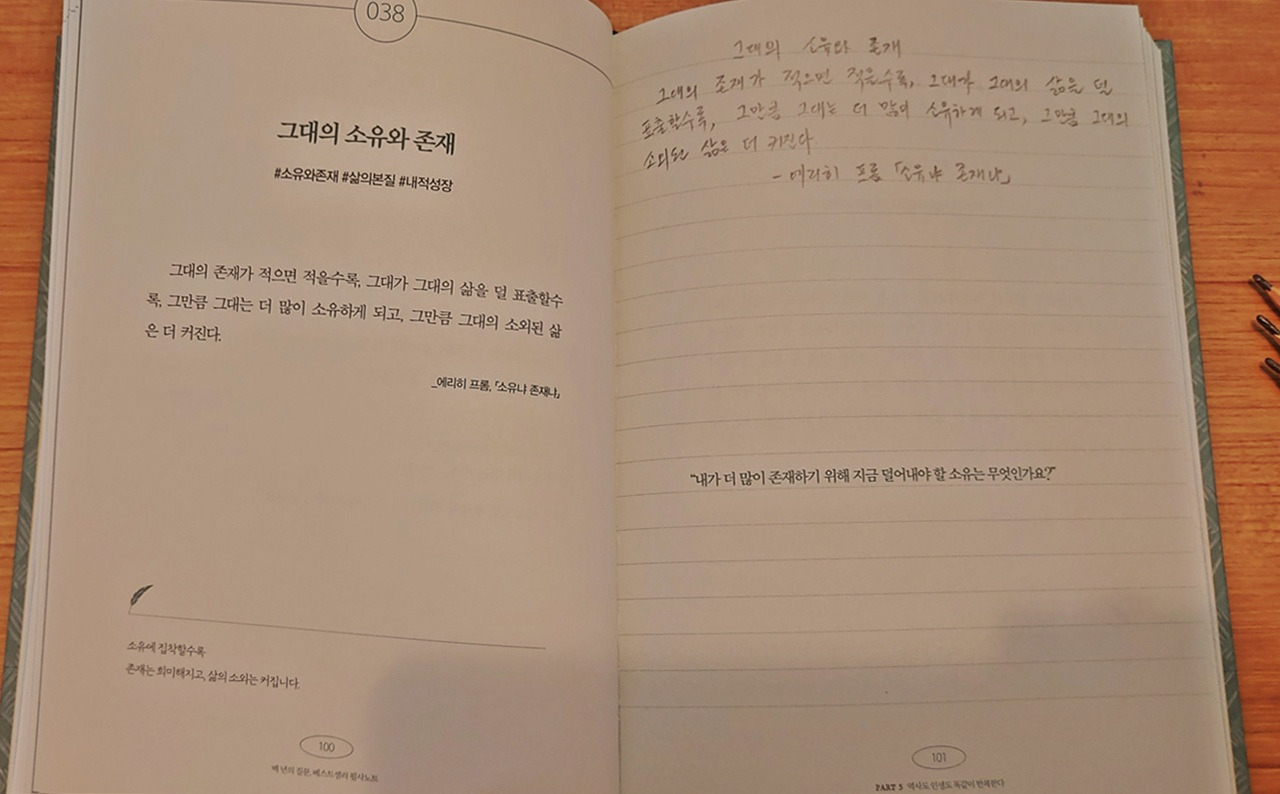 038
그대의 소유와 존재
#소유와존재 #삶의본질 #내적성장
그대의 존재가 적으면 적을수록, 그대가 그대의 삶을 덜 표출할수
록, 그만큼 그대는 더 많이 소유하게 되고, 그만큼 그대의 소외된 삶
은 더 커진다.
_에리히 프롬, 「소유냐 존재냐」
소유에 집착할수록
존재는 희미해지고, 삶의 소외는 커집니다.
100
백 년의 질문, 베스트셀러 필사노트
그대의 소유와 존재
그대의 존재가 적으면 적을수록, 그대가 그대의 삶을 덜
표출할수록, 그만큼 그대는 더 많이 소유하게 되고, 그만큼 그대의
소외된 삶은 더 커진다
- 에리히 프롬 「소유냐 존재냐」
“내가 더 많이 존재하기 위해 지금 덜어내야 할 소유는 무엇인가요?”
101
PART 3 역사도 인생도 똑같이 반복한다